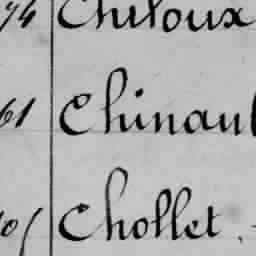 74 Chiloux
61 Chinaul
Chollet.